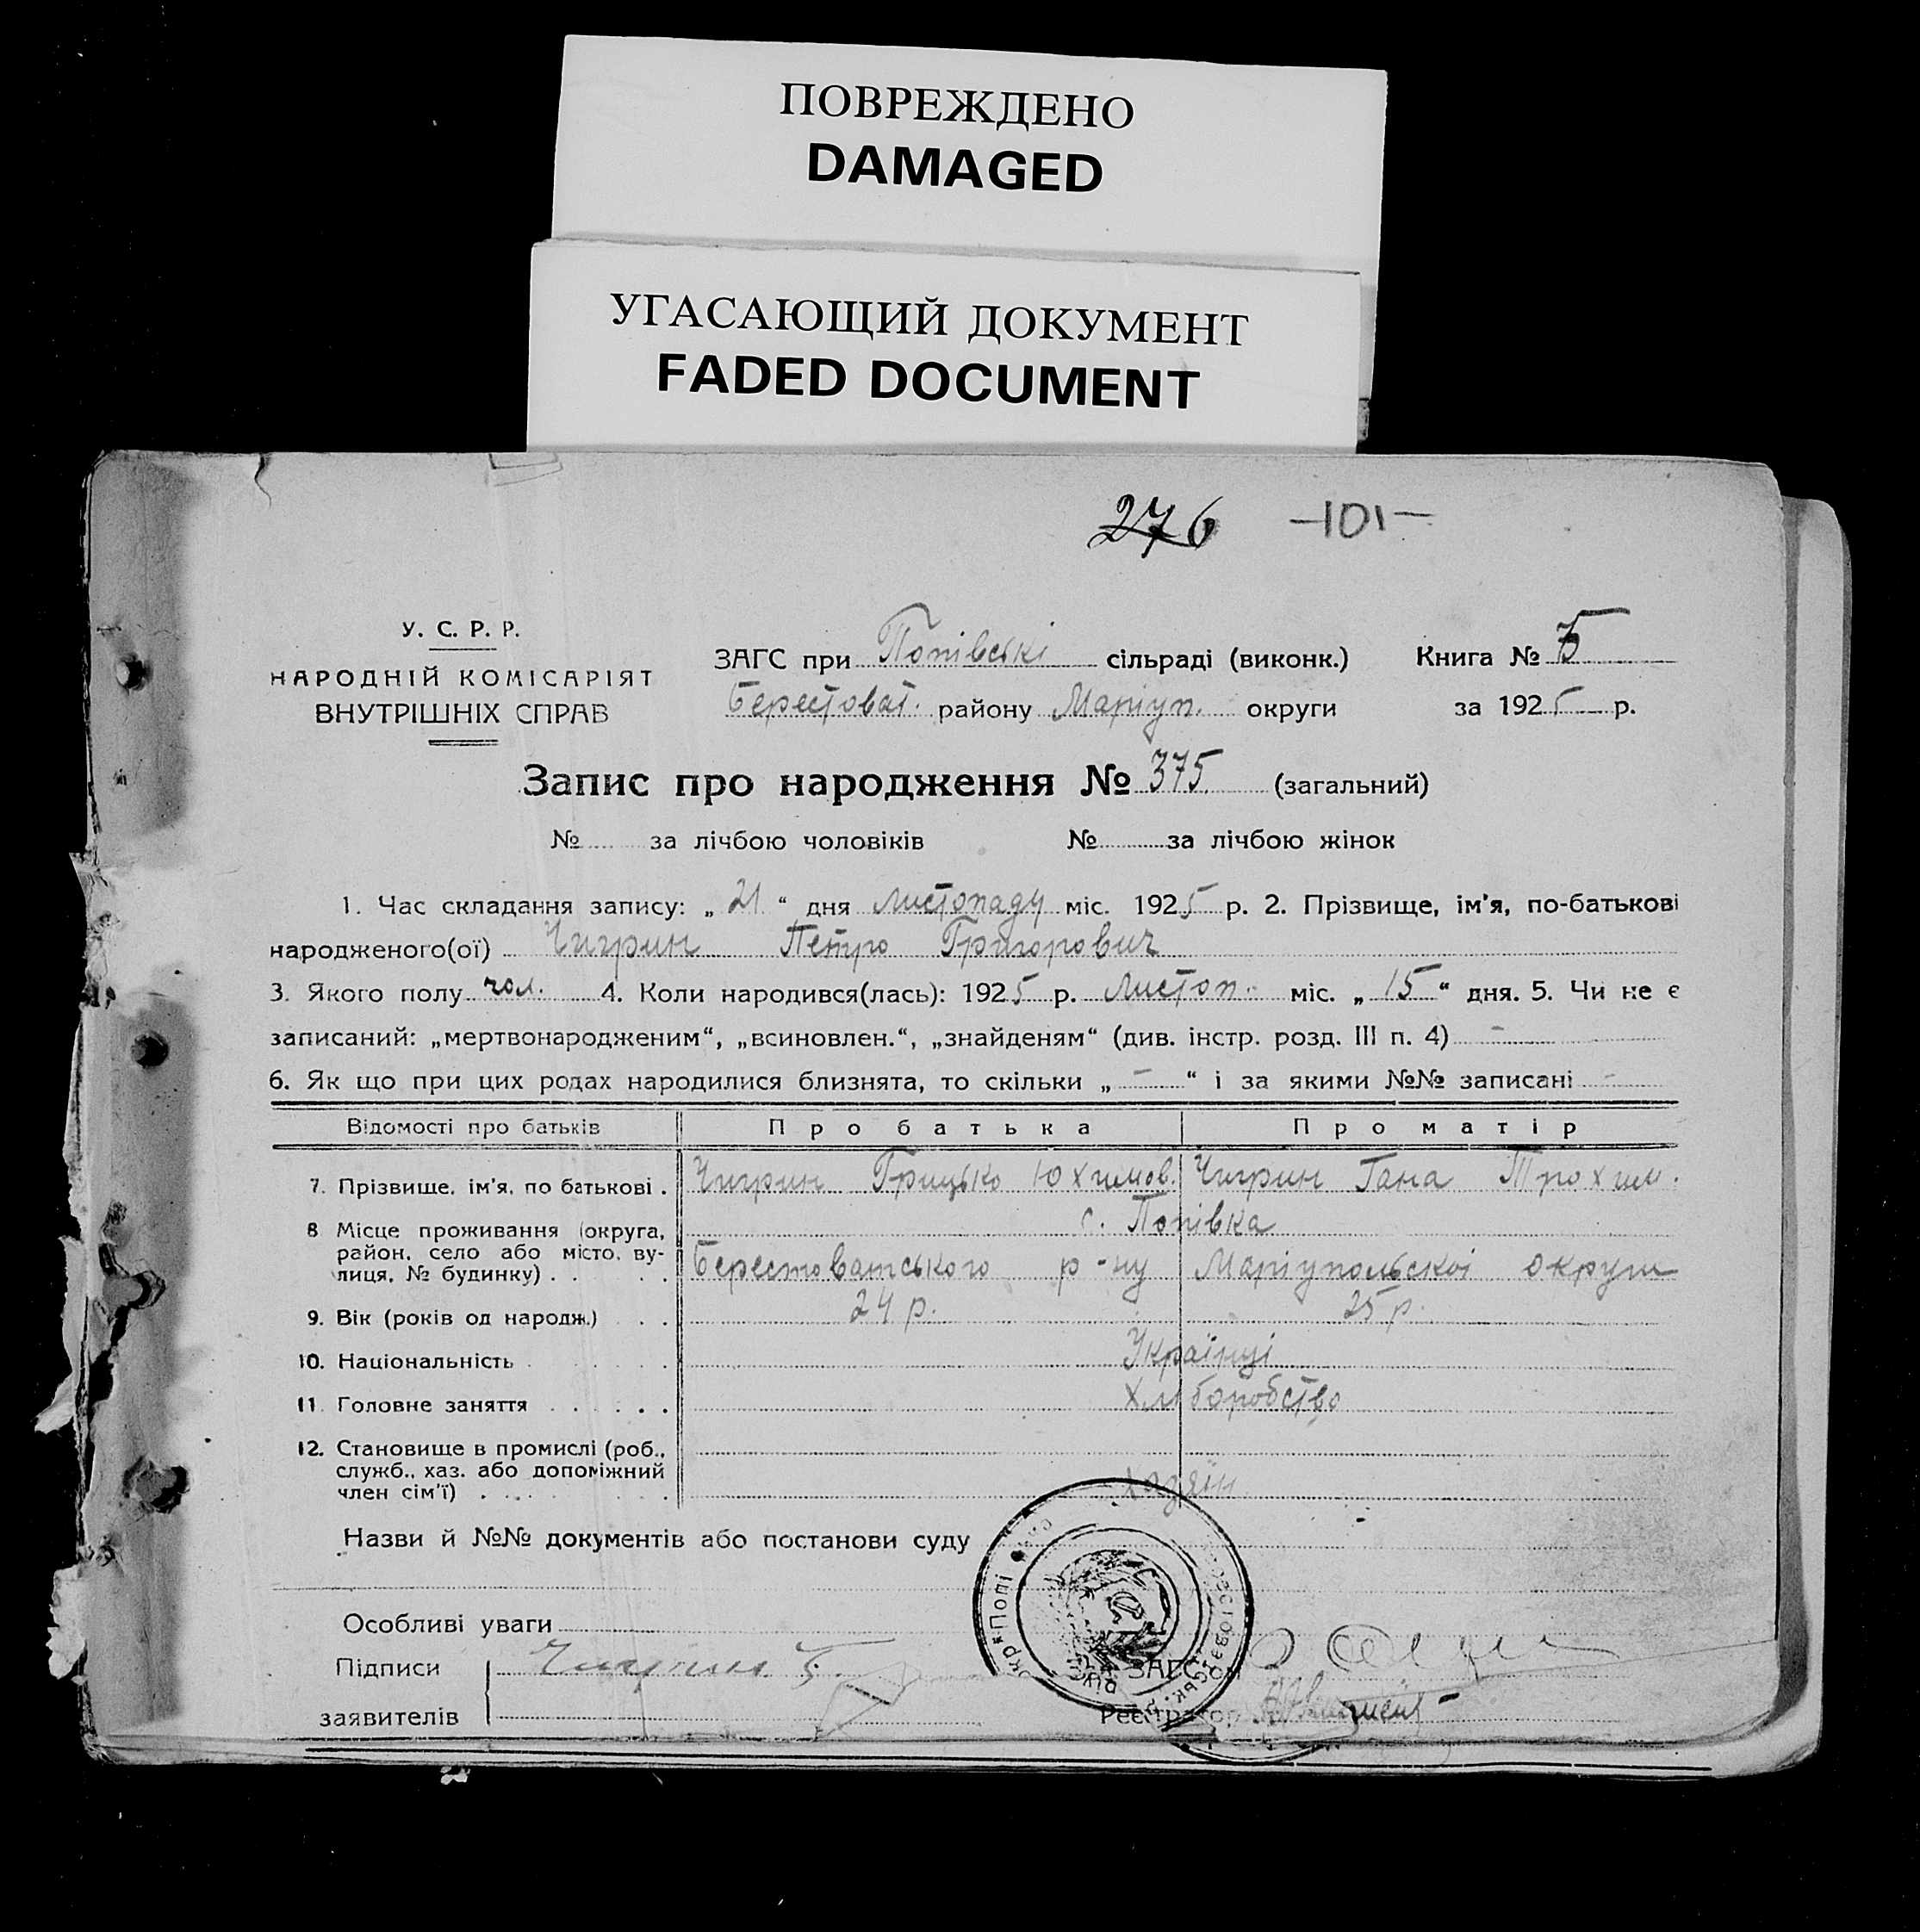 ПОВРЕЖДЕНО
DAMAGED
УГАСАЮЩИЙ ДОКУМЕНТ
FADED DOCUMENT
276 -101-
У. С. Р. Р.
НАРОДНІЙ КОМІСАРІЯТ
ВНУТРІШНІХ СПРАВ
ЗАГС при Попівські сільраді (виконк.) Книга № 5
Берестоват. району Маріуп. округи за 1925 р.
Запис про народження № 375. (загальний)
№ за лічбою чоловіків № за лічбою жінок
1. Час складання запису: „ 21 “ дня листопаду міс. 1925 р. 2. Прізвище, ім'я, по-батькові
народженого(ої) Чигрин Петро Григорович
3. Якого полу чол. 4. Коли народився(лась): 1925 р. Листоп. міс. „ 15 “ дня. 5. Чи не є
записаний: „мертвонародженим“, „всиновлен.“, „знайденям“ (див. інстр. розд. III п. 4) -
6. Як що при цих родах народилися близнята, то скільки „ - “ і за якими №№ записані -
Відомості про батьків Про батька Про матір
7. Прізвище, ім'я, по батькові . Чигрин Грицько Юхимов. Чигрин Гана Трохим.
8 Місце проживання (округа, с. Попівка
район, село або місто, ву-
лиця, № будинку) . . . . Берестоватського р-ну Маріупольскої округи
9. Вік (років од народж.) . . 24 р. 25 р.
10. Національність . . . . . Українці
11. Головне заняття . . . . . . Хліборобство
12. Становище в промислі (роб.,
служб., хаз. або допоміжний
член сім'ї) . . . . . хазяїн
Назви й №№ документів або постанови суду
Особливі уваги
Підписи Чигрин Г. ЗАГС
заявителів Реєстратор